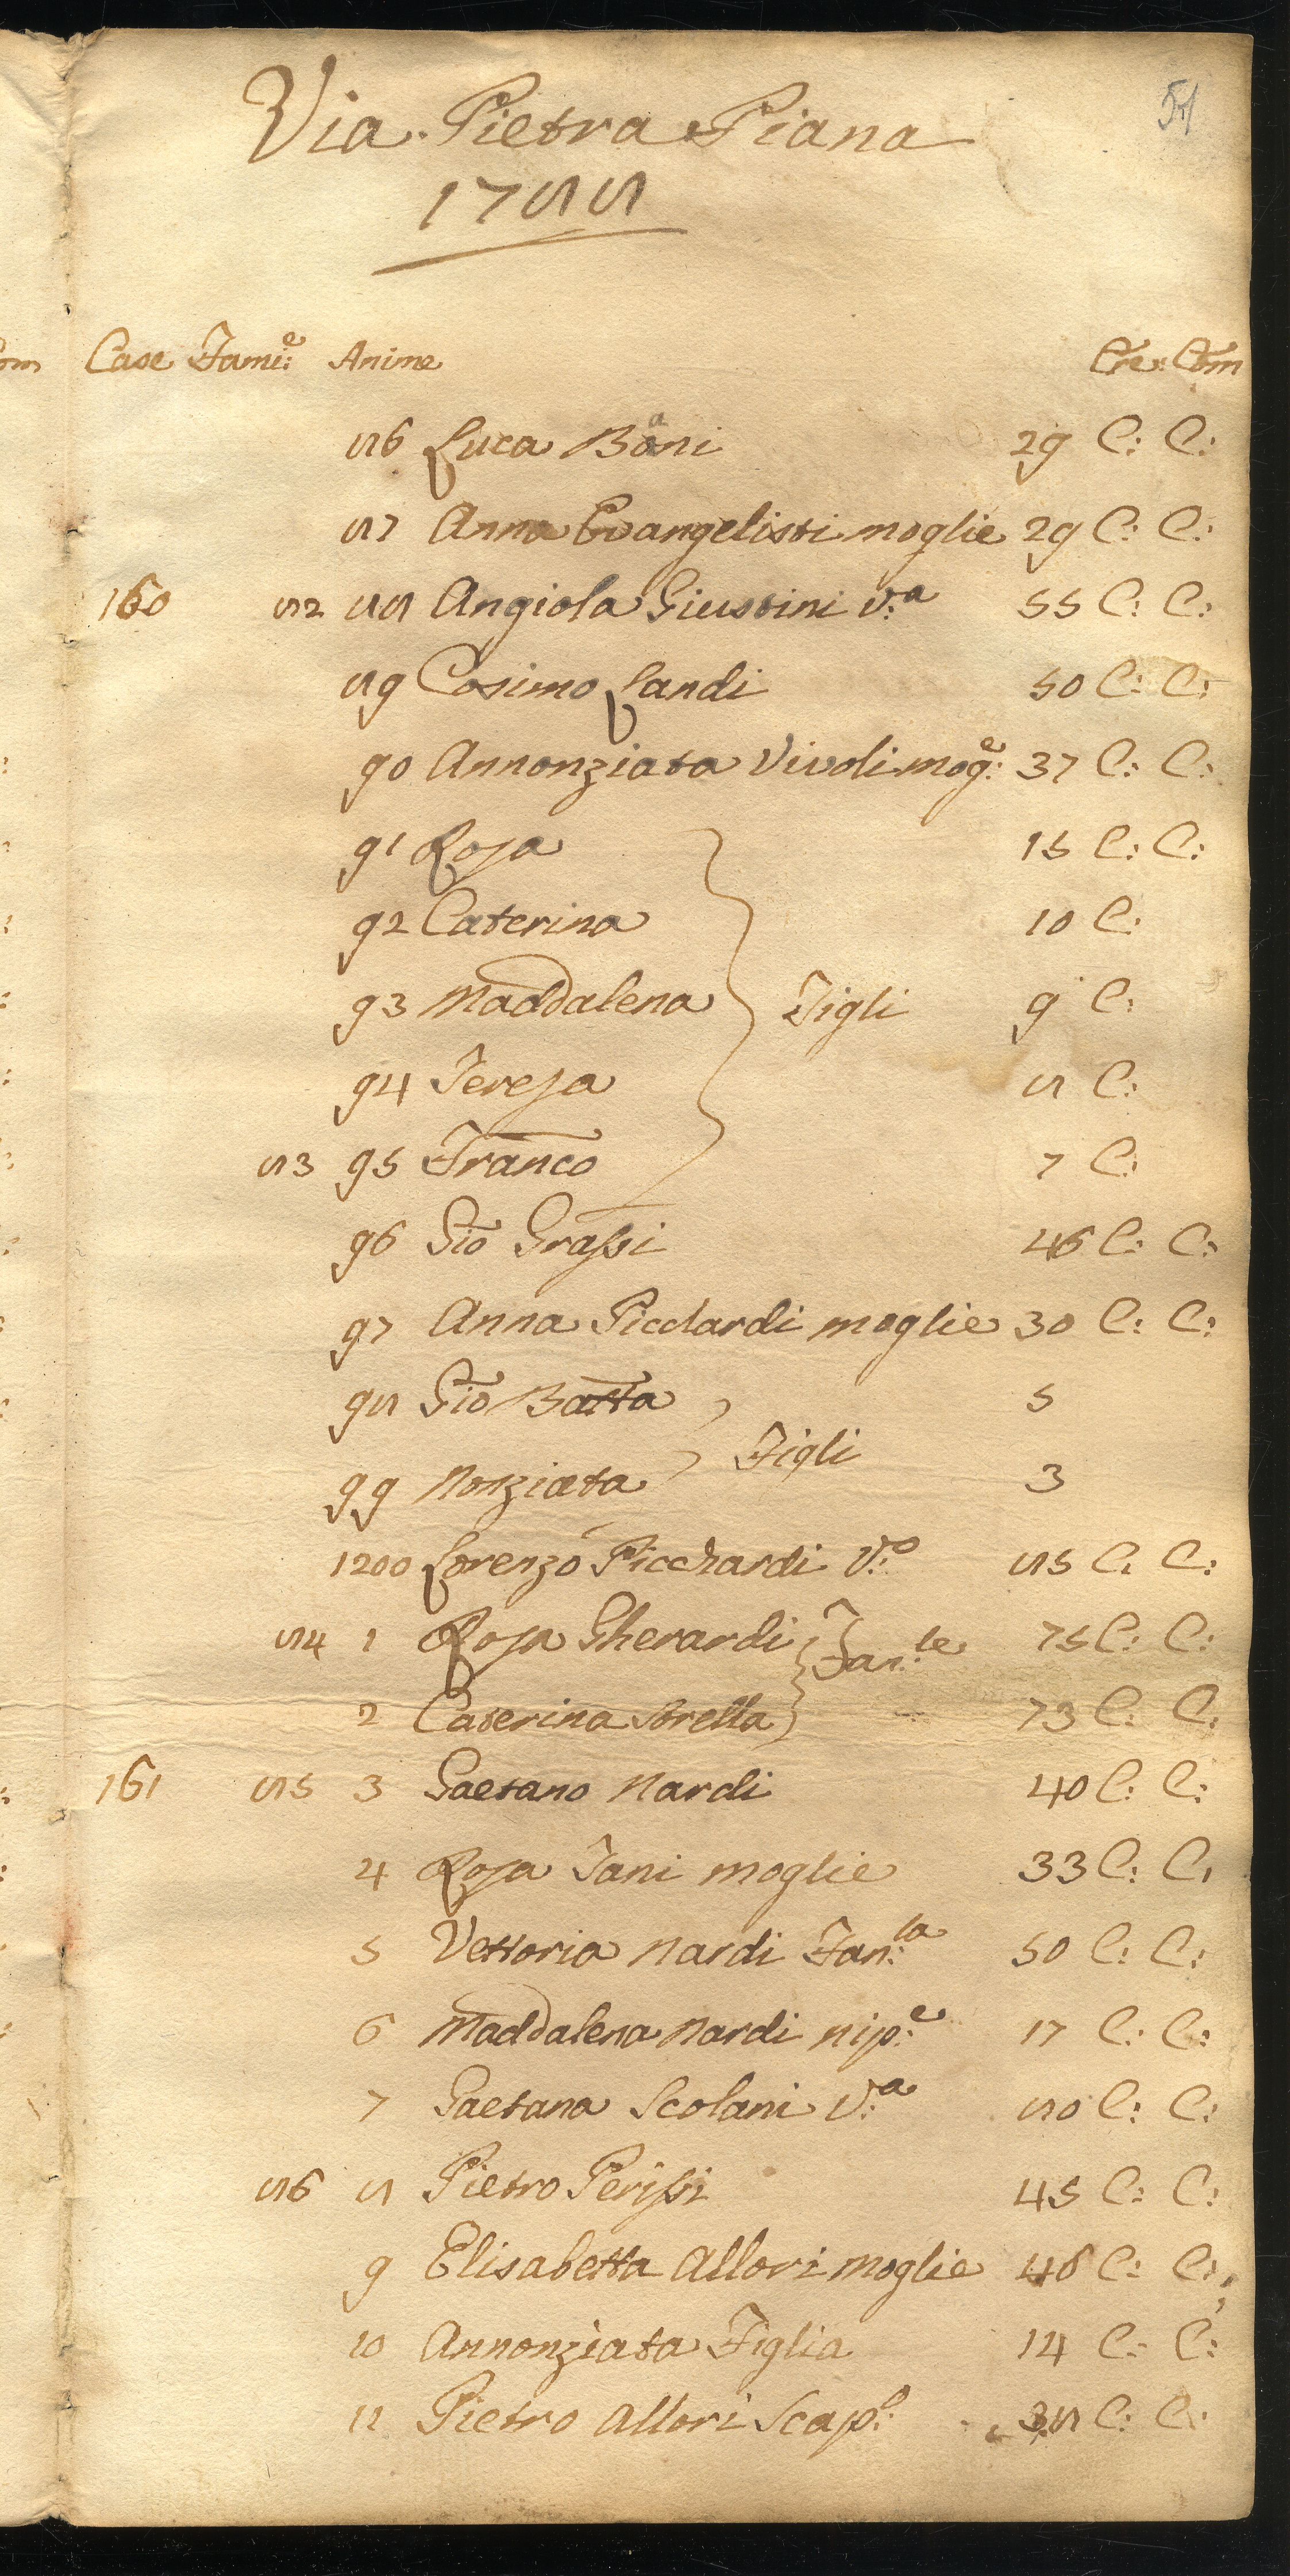 Via Pietra Piana
1788
Case Fami:e Anime Cre: Com
86 Luca Bani 29 C: C:
87 Anna Evangelisti moglie 29 C: C:
160 82 88 Angiola Giustini V:a 55 C: C:
89 Cosimo Landi 50 C: C:
90 Annonziata Vivoli mog:e 37 C: C:
91 Rosa 15 C: C:
92 Caterina 10 C:
93 Maddalena Figli 9 C:
94 Teresa 8 C:
83 95 Franco 7 C:
96 Gio Grassi 46 C: C:
97 Anna Picchardi moglie 30 C: C:
98 Gio Batta 5
Figli
99 Nonziata 3
1200 Lorenzo Picchardi V:o 85 C: C:
84 1 Rosa Gherardi Fan:le 75 C: C:
2 Caterina Sorella 73 C: C:
161 85 3 Gaetano Nardi 40 C: C:
4 Rosa Fani moglie 33 C: C:
5 Vettoria Nardi Fan:la 50 C: C:
6 Maddalena Nardi nip:e 17 C: C:
7 Gaetana Scolari V:a 80 C: C:
86 8 Pietro Perissi 45 C: C:
9 Elisabetta Allori moglie 46 C: C:
10 Annonziata Figlia 14 C: C:
11 Pietro Allori Scap:o 38 C: C: